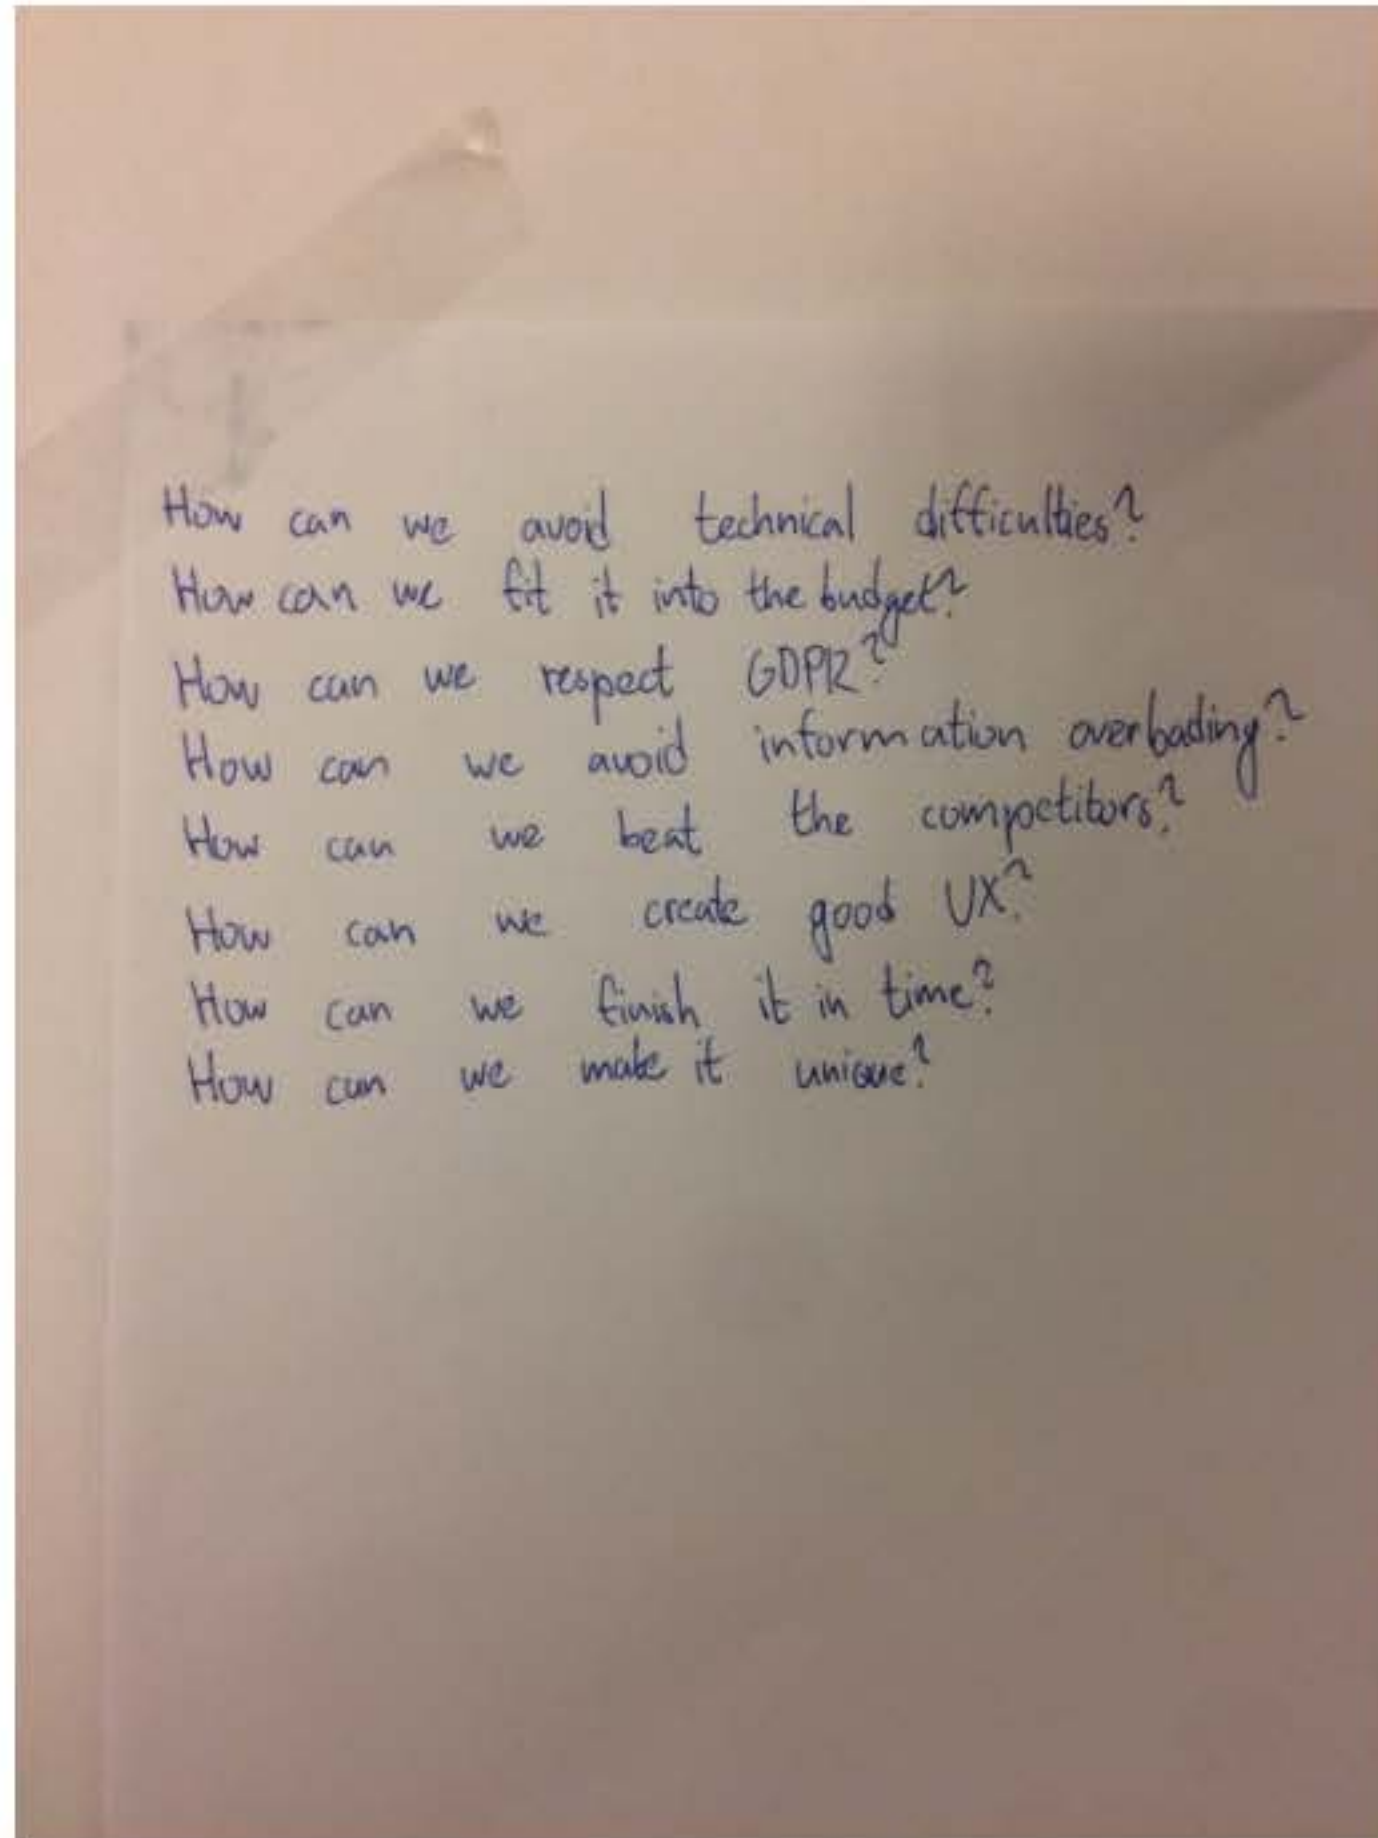 How can we avoid technical difficulties?
How can we fit it into the budget?
How can we respect GDPR?
How can we avoid information overloading?
How can we beat the competitors?
How can we create good UX?
How can we finish it in time?
How can we make it unique?